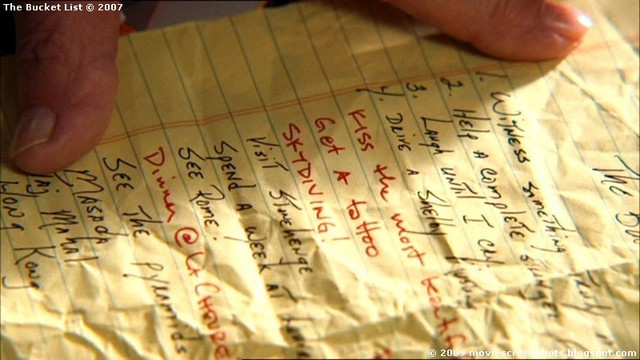 The Bucket List © 2007
The Bu
1. Witness something Truly
2. Help a complete stranger
3. Laugh until I cry
4. Drive a Shelby
Kiss the most
Get a tattoo
SKYDIVING!
Visit Stonehenge
Spend a week at
See Rome.
Dinner @ La
See the Pyramids
Masada
Mahal
Hong Kong
© 2009 moviescreenshots.blogspot.com